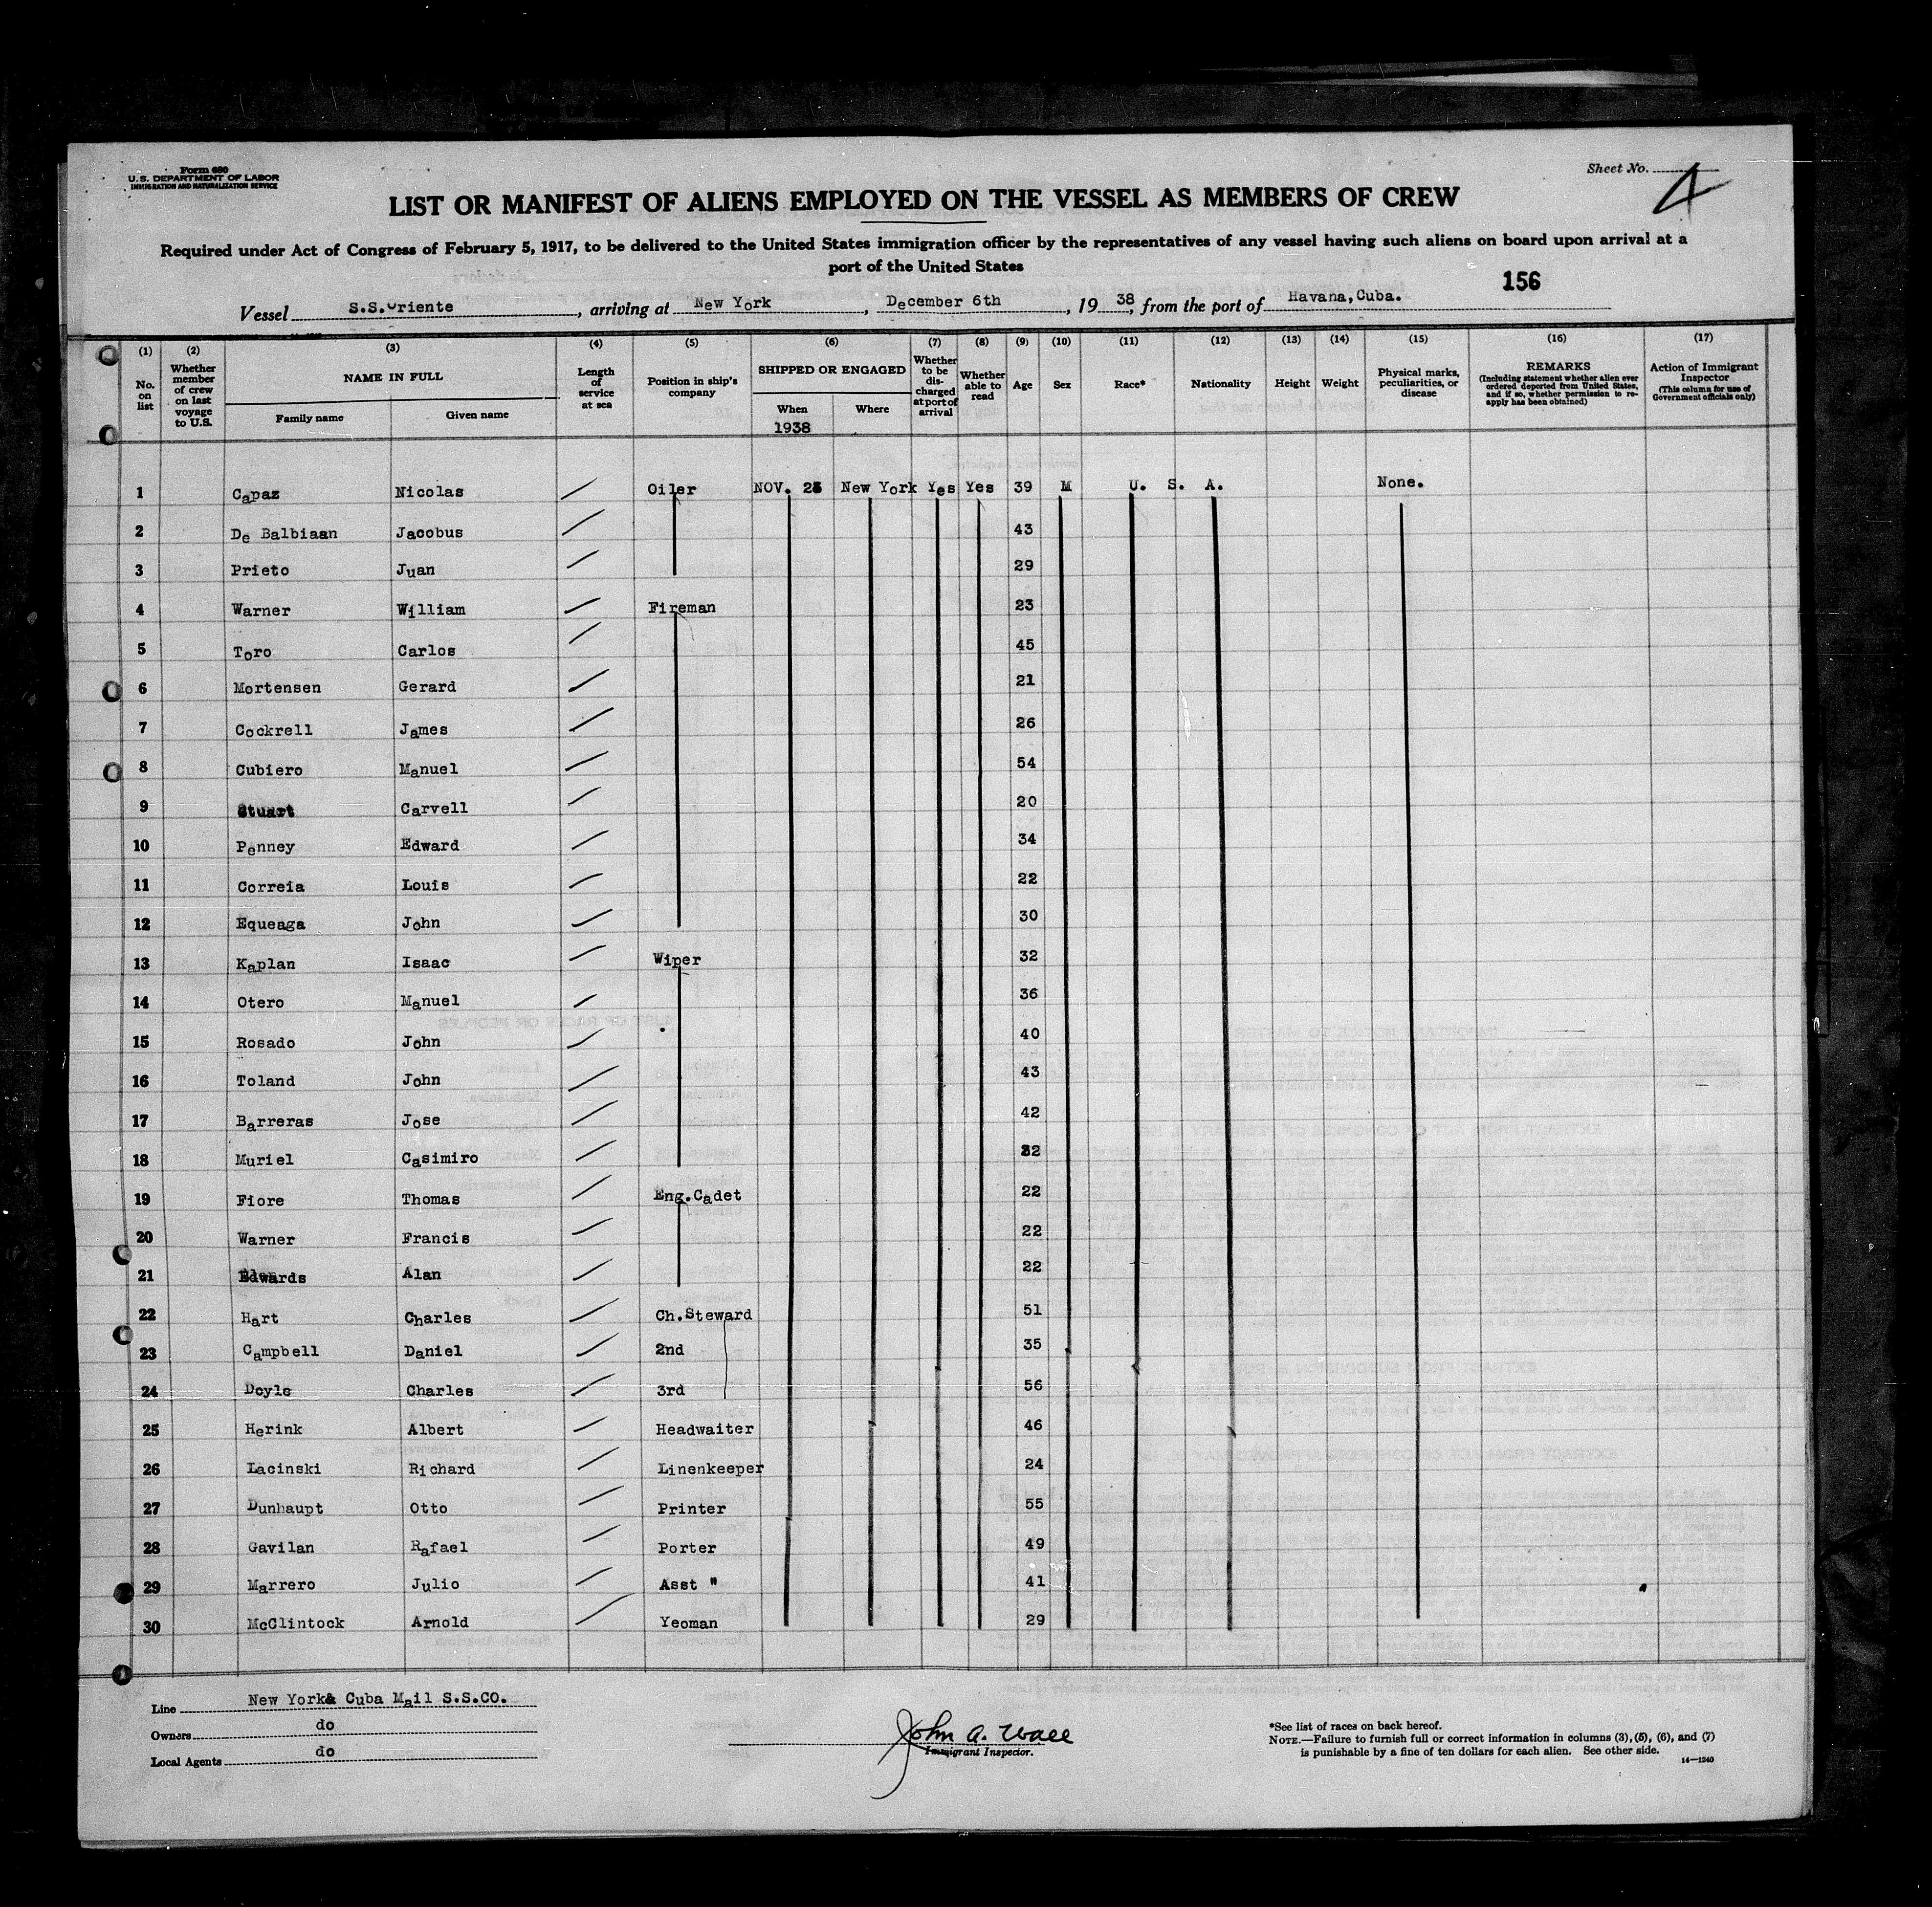 Form 680
U. S. DEPARTMENT OF LABOR
IMMIGRATION AND NATURALIZATION SERVICE
Sheet No. 4
LIST OR MANIFEST OF ALIENS EMPLOYED ON THE VESSEL AS MEMBERS OF CREW
Required under Act of Congress of February 5, 1917, to be delivered to the United States immigration officer by the representatives of any vessel having such aliens on board upon arrival at a
port of the United States
156
Vessel S.S.Oriente, arriving at New York, December 6th, 19 38, from the port of Havana,Cuba.
(1) (2) (3) (4) (5) (6) (7) (8) (9) (10) (11) (12) (13) (14) (15) (16) (17)
No. on list
Whether member of crew on last voyage to U.S.
NAME IN FULL
Family name
Given name
Length of service at sea
Position in ship's company
SHIPPED OR ENGAGED
When
1938
Where
Whether to be discharged at port of arrival
Whether able to read
Age
Sex
Race*
Nationality
Height
Weight
Physical marks, peculiarities, or disease
REMARKS
(Including statement whether alien ever ordered deported from United States, and if so, whether permission to reapply has been obtained)
Action of Immigrant Inspector
(This column for use of Government officials only)
1 Capaz Nicolas Oiler NOV. 25 New York Yes Yes 39 M U. S. A. None.
2 De Balbiaan Jacobus 43
3 Prieto Juan 29
4 Warner William Fireman 23
5 Toro Carlos 45
6 Mortensen Gerard 21
7 Cockrell James 26
8 Cubiero Manuel 54
9 Stuart Carvell 20
10 Penney Edward 34
11 Correia Louis 22
12 Equeaga John 30
13 Kaplan Isaac Wiper 32
14 Otero Manuel 36
15 Rosado John 40
16 Toland John 43
17 Barreras Jose 42
18 Muriel Casimiro 32
19 Fiore Thomas Eng.Cadet 22
20 Warner Francis 22
21 Edwards Alan 22
22 Hart Charles Ch.Steward 51
23 Campbell Daniel 2nd 35
24 Doyle Charles 3rd 56
25 Herink Albert Headwaiter 46
26 Lacinski Richard Linenkeeper 24
27 Dunhaupt Otto Printer 55
28 Gavilan Rafael Porter 49
29 Marrero Julio Asst " 41
30 McClintock Arnold Yeoman 29
Line New York& Cuba Mail S.S.CO.
Owners do
Local Agents do
John A. Wall
Immigrant Inspector.
*See list of races on back hereof.
NOTE.—Failure to furnish full or correct information in columns (3), (5), (6), and (7)
is punishable by a fine of ten dollars for each alien. See other side.
14—1240